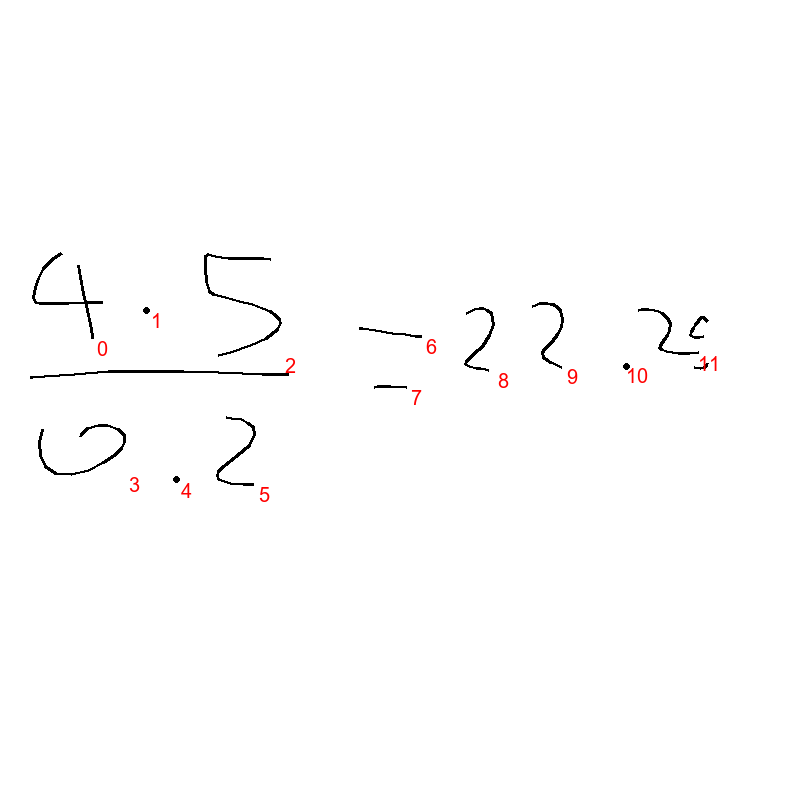 4.5
0.2
= 22.25
0
1
2
3
4
5
6
7
8
9
10
11